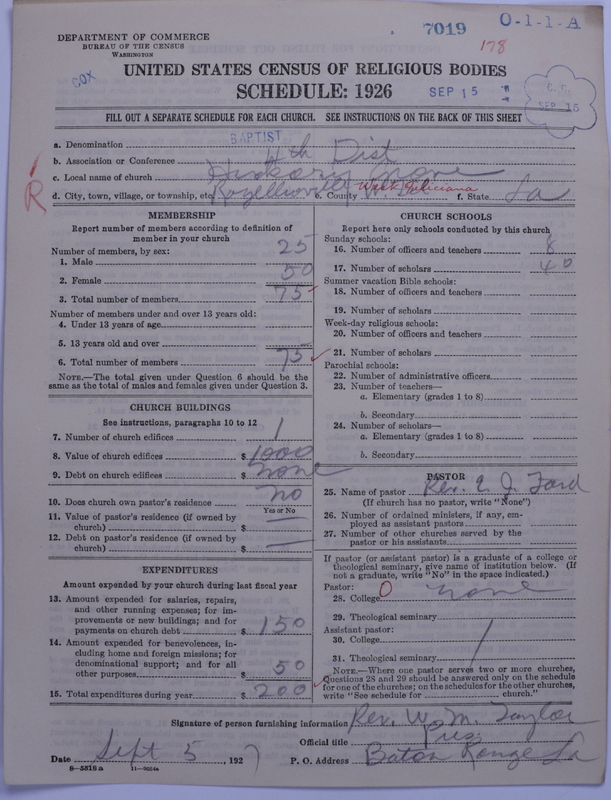 7019
O-1-1-A
178
DEPARTMENT OF COMMERCE
BUREAU OF THE CENSUS
WASHINGTON
COX
UNITED STATES CENSUS OF RELIGIOUS BODIES
SCHEDULE: 1926
SEP 15
SEP 16
FILL OUT A SEPARATE SCHEDULE FOR EACH CHURCH. SEE INSTRUCTIONS ON THE BACK OF THIS SHEET
a. Denomination BAPTIST
b. Association or Conference 4th Dist
c. Local name of church Hickory Grove
R
d. City, town, village, or township, etc. e. County West Feliciana f. State La
MEMBERSHIP
Report number of members according to definition of
member in your church
Number of members, by sex:
1. Male 25
2. Female 50
3. Total number of members 75
Number of members under and over 13 years old:
4. Under 13 years of age
5. 13 years old and over
6. Total number of members 75
NOTE.—The total given under Question 6 should be the
same as the total of males and females given under Question 3.
CHURCH BUILDINGS
See instructions, paragraphs 10 to 12
7. Number of church edifices 1
8. Value of church edifices $ 1000
9. Debt on church edifices $ none
10. Does church own pastor's residence no
Yes or No
11. Value of pastor's residence (if owned by
church) $ —
12. Debt on pastor's residence (if owned by
church) $ —
EXPENDITURES
Amount expended by your church during last fiscal year
13. Amount expended for salaries, repairs,
and other running expenses; for im-
provements or new buildings; and for
payments on church debt $ 150
14. Amount expended for benevolences, in-
cluding home and foreign missions; for
denominational support; and for all
other purposes $ 50
15. Total expenditures during year $ 200
CHURCH SCHOOLS
Report here only schools conducted by this church
Sunday schools:
16. Number of officers and teachers 8
17. Number of scholars 40
Summer vacation Bible schools:
18. Number of officers and teachers
19. Number of scholars
Week-day religious schools:
20. Number of officers and teachers
21. Number of scholars
Parochial schools:
22. Number of administrative officers
23. Number of teachers—
a. Elementary (grades 1 to 8)
b. Secondary
24. Number of scholars—
a. Elementary (grades 1 to 8)
b. Secondary
PASTOR
25. Name of pastor Rev. E. J. Ford
(If church has no pastor, write "None")
26. Number of ordained ministers, if any, em-
ployed as assistant pastors
27. Number of other churches served by the
pastor or his assistants
If pastor (or assistant pastor) is a graduate of a college or
theological seminary, give name of institution below. (If
not a graduate, write "No" in the space indicated.)
Pastor:
28. College 0 none
29. Theological seminary
Assistant pastor:
30. College
31. Theological seminary
NOTE.—Where one pastor serves two or more churches,
Questions 28 and 29 should be answered only on the schedule
for one of the churches; on the schedules for the other churches,
write "See schedule for church."
Signature of person furnishing information Rev. W. M. Taylor
Official title Pres
Date Sept 5, 1927 P. O. Address Baton Rouge La
8—5518 a 11—9054a